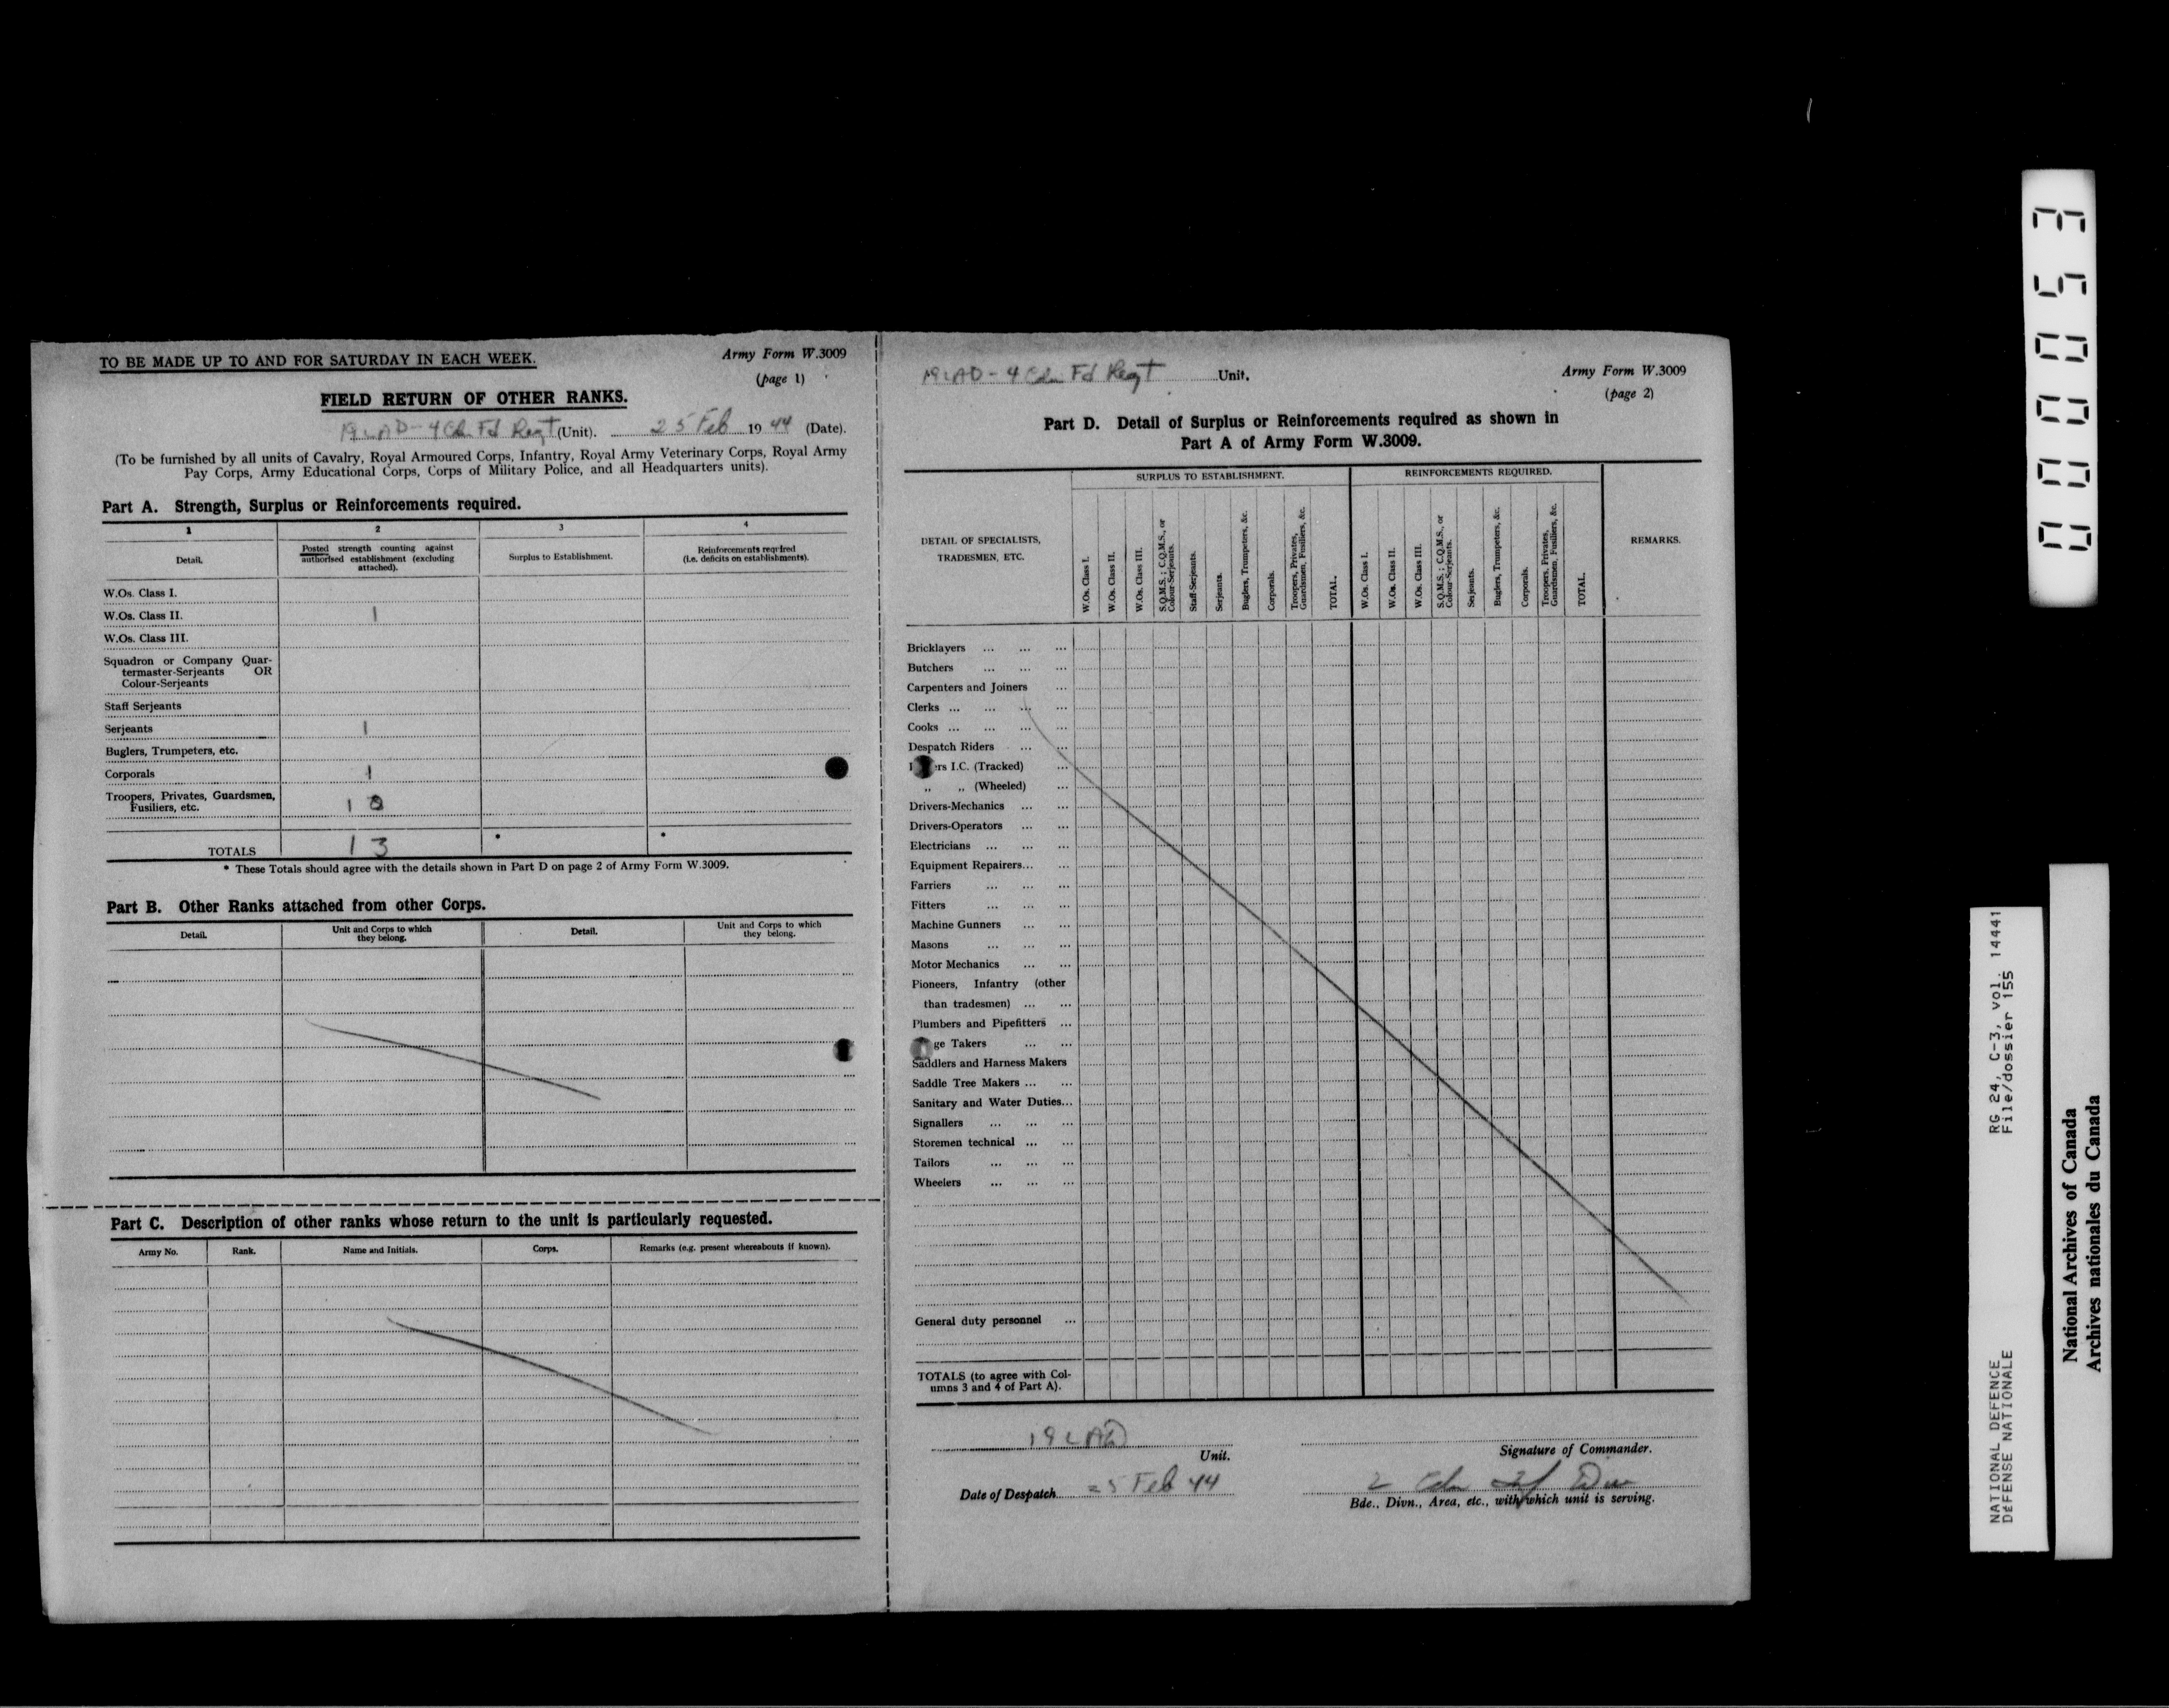 TO BE MADE UP TO AND FOR SATURDAY IN EACH WEEK.
Army Form W.3009
(page 1)
FIELD RETURN OF OTHER RANKS.
19 LAD - 4 Cdn Fd Regt (Unit). 25 Feb 1944 (Date).
(To be furnished by all units of Cavalry, Royal Armoured Corps, Infantry, Royal Army Veterinary Corps, Royal Army
Pay Corps, Army Educational Corps, Corps of Military Police, and all Headquarters units).
Part A. Strength, Surplus or Reinforcements required.
1 2 3 4
Detail.
Posted strength counting against
authorised establishment (excluding
attached).
Surplus to Establishment.
Reinforcements required
(i.e. deficits on establishments).
W.Os. Class I.
W.Os. Class II. 1
W.Os. Class III.
Squadron or Company Quar-
termaster-Serjeants OR
Colour-Serjeants
Staff Serjeants
Serjeants 1
Buglers, Trumpeters, etc.
Corporals 1
Troopers, Privates, Guardsmen,
Fusiliers, etc. 10
TOTALS 13 * *
* These Totals should agree with the details shown in Part D on page 2 of Army Form W.3009.
Part B. Other Ranks attached from other Corps.
Detail.
Unit and Corps to which
they belong.
Detail.
Unit and Corps to which
they belong.
Part C. Description of other ranks whose return to the unit is particularly requested.
Army No. Rank. Name and Initials. Corps. Remarks (e.g. present whereabouts if known).
19 LAD - 4 Cdn Fd Regt Unit.
Army Form W.3009
(page 2)
Part D. Detail of Surplus or Reinforcements required as shown in
Part A of Army Form W.3009.
DETAIL OF SPECIALISTS,
TRADESMEN, ETC.
SURPLUS TO ESTABLISHMENT.
W.Os. Class I.
W.Os. Class II.
W.Os. Class III.
S.Q.M.S.; C.Q.M.S., or
Colour-Serjeants.
Staff-Serjeants.
Serjeants.
Buglers, Trumpeters, &c.
Corporals.
Troopers, Privates,
Guardsmen, Fusiliers, &c.
TOTAL.
REINFORCEMENTS REQUIRED.
W.Os. Class I.
W.Os. Class II.
W.Os. Class III.
S.Q.M.S.; C.Q.M.S., or
Colour-Serjeants.
Serjeants.
Buglers, Trumpeters, &c.
Corporals.
Troopers, Privates,
Guardsmen, Fusiliers, &c.
TOTAL.
REMARKS.
Bricklayers ... ... ...
Butchers ... ... ...
Carpenters and Joiners ...
Clerks ... ... ... ...
Cooks ... ... ... ...
Despatch Riders ... ...
ers I.C. (Tracked) ...
,, ,, (Wheeled) ...
Drivers-Mechanics ... ...
Drivers-Operators ... ...
Electricians ... ... ...
Equipment Repairers... ...
Farriers ... ... ...
Fitters ... ... ...
Machine Gunners ... ...
Masons ... ... ...
Motor Mechanics ... ...
Pioneers, Infantry (other
than tradesmen) ... ...
Plumbers and Pipefitters ...
ge Takers ... ...
Saddlers and Harness Makers
Saddle Tree Makers ... ...
Sanitary and Water Duties...
Signallers ... ... ...
Storemen technical ... ...
Tailors ... ... ...
Wheelers ... ... ...
General duty personnel ...
TOTALS (to agree with Col-
umns 3 and 4 of Part A).
19 LAD
Unit.
Date of Despatch 25 Feb 44
Signature of Commander.
2 Cdn Inf Div
Bde., Divn., Area, etc., with which unit is serving.
000053
RG 24, C-3, vol. 14441
File/dossier 155
NATIONAL DEFENCE
DéFENSE NATIONALE
National Archives of Canada
Archives nationales du Canada